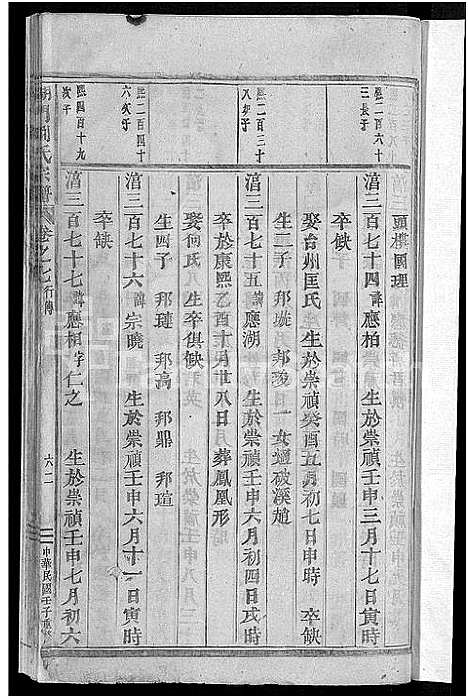 熙二百六十
三長子
湻三百七十四 諱應柏 生於崇禎壬申三月十七日寅時
卒缺
娶台州匡氏 生於崇禎癸酉五月初七日申時 卒缺
生二子 邦琁 邦陵 女適破溪趙
熙二百三十
八次子
湻三百七十五 諱應湖 生於崇禎壬申六月初四日戌時
卒於康熙乙酉十月廿八日 葬鳳凰形
娶何氏 生卒俱缺
生四子 邦璉 邦高 邦鼎 邦瑄
熙二百四十
六次子
湻三百七十六 諱宗曉 生於崇禎壬申六月十一日寅時
卒缺
熙四百十九
次子
湻三百七十七 諱應桓 字仁之 生於崇禎壬申七月初六
氏宗譜 卷之七 行傳 六二 中華民國壬子重修